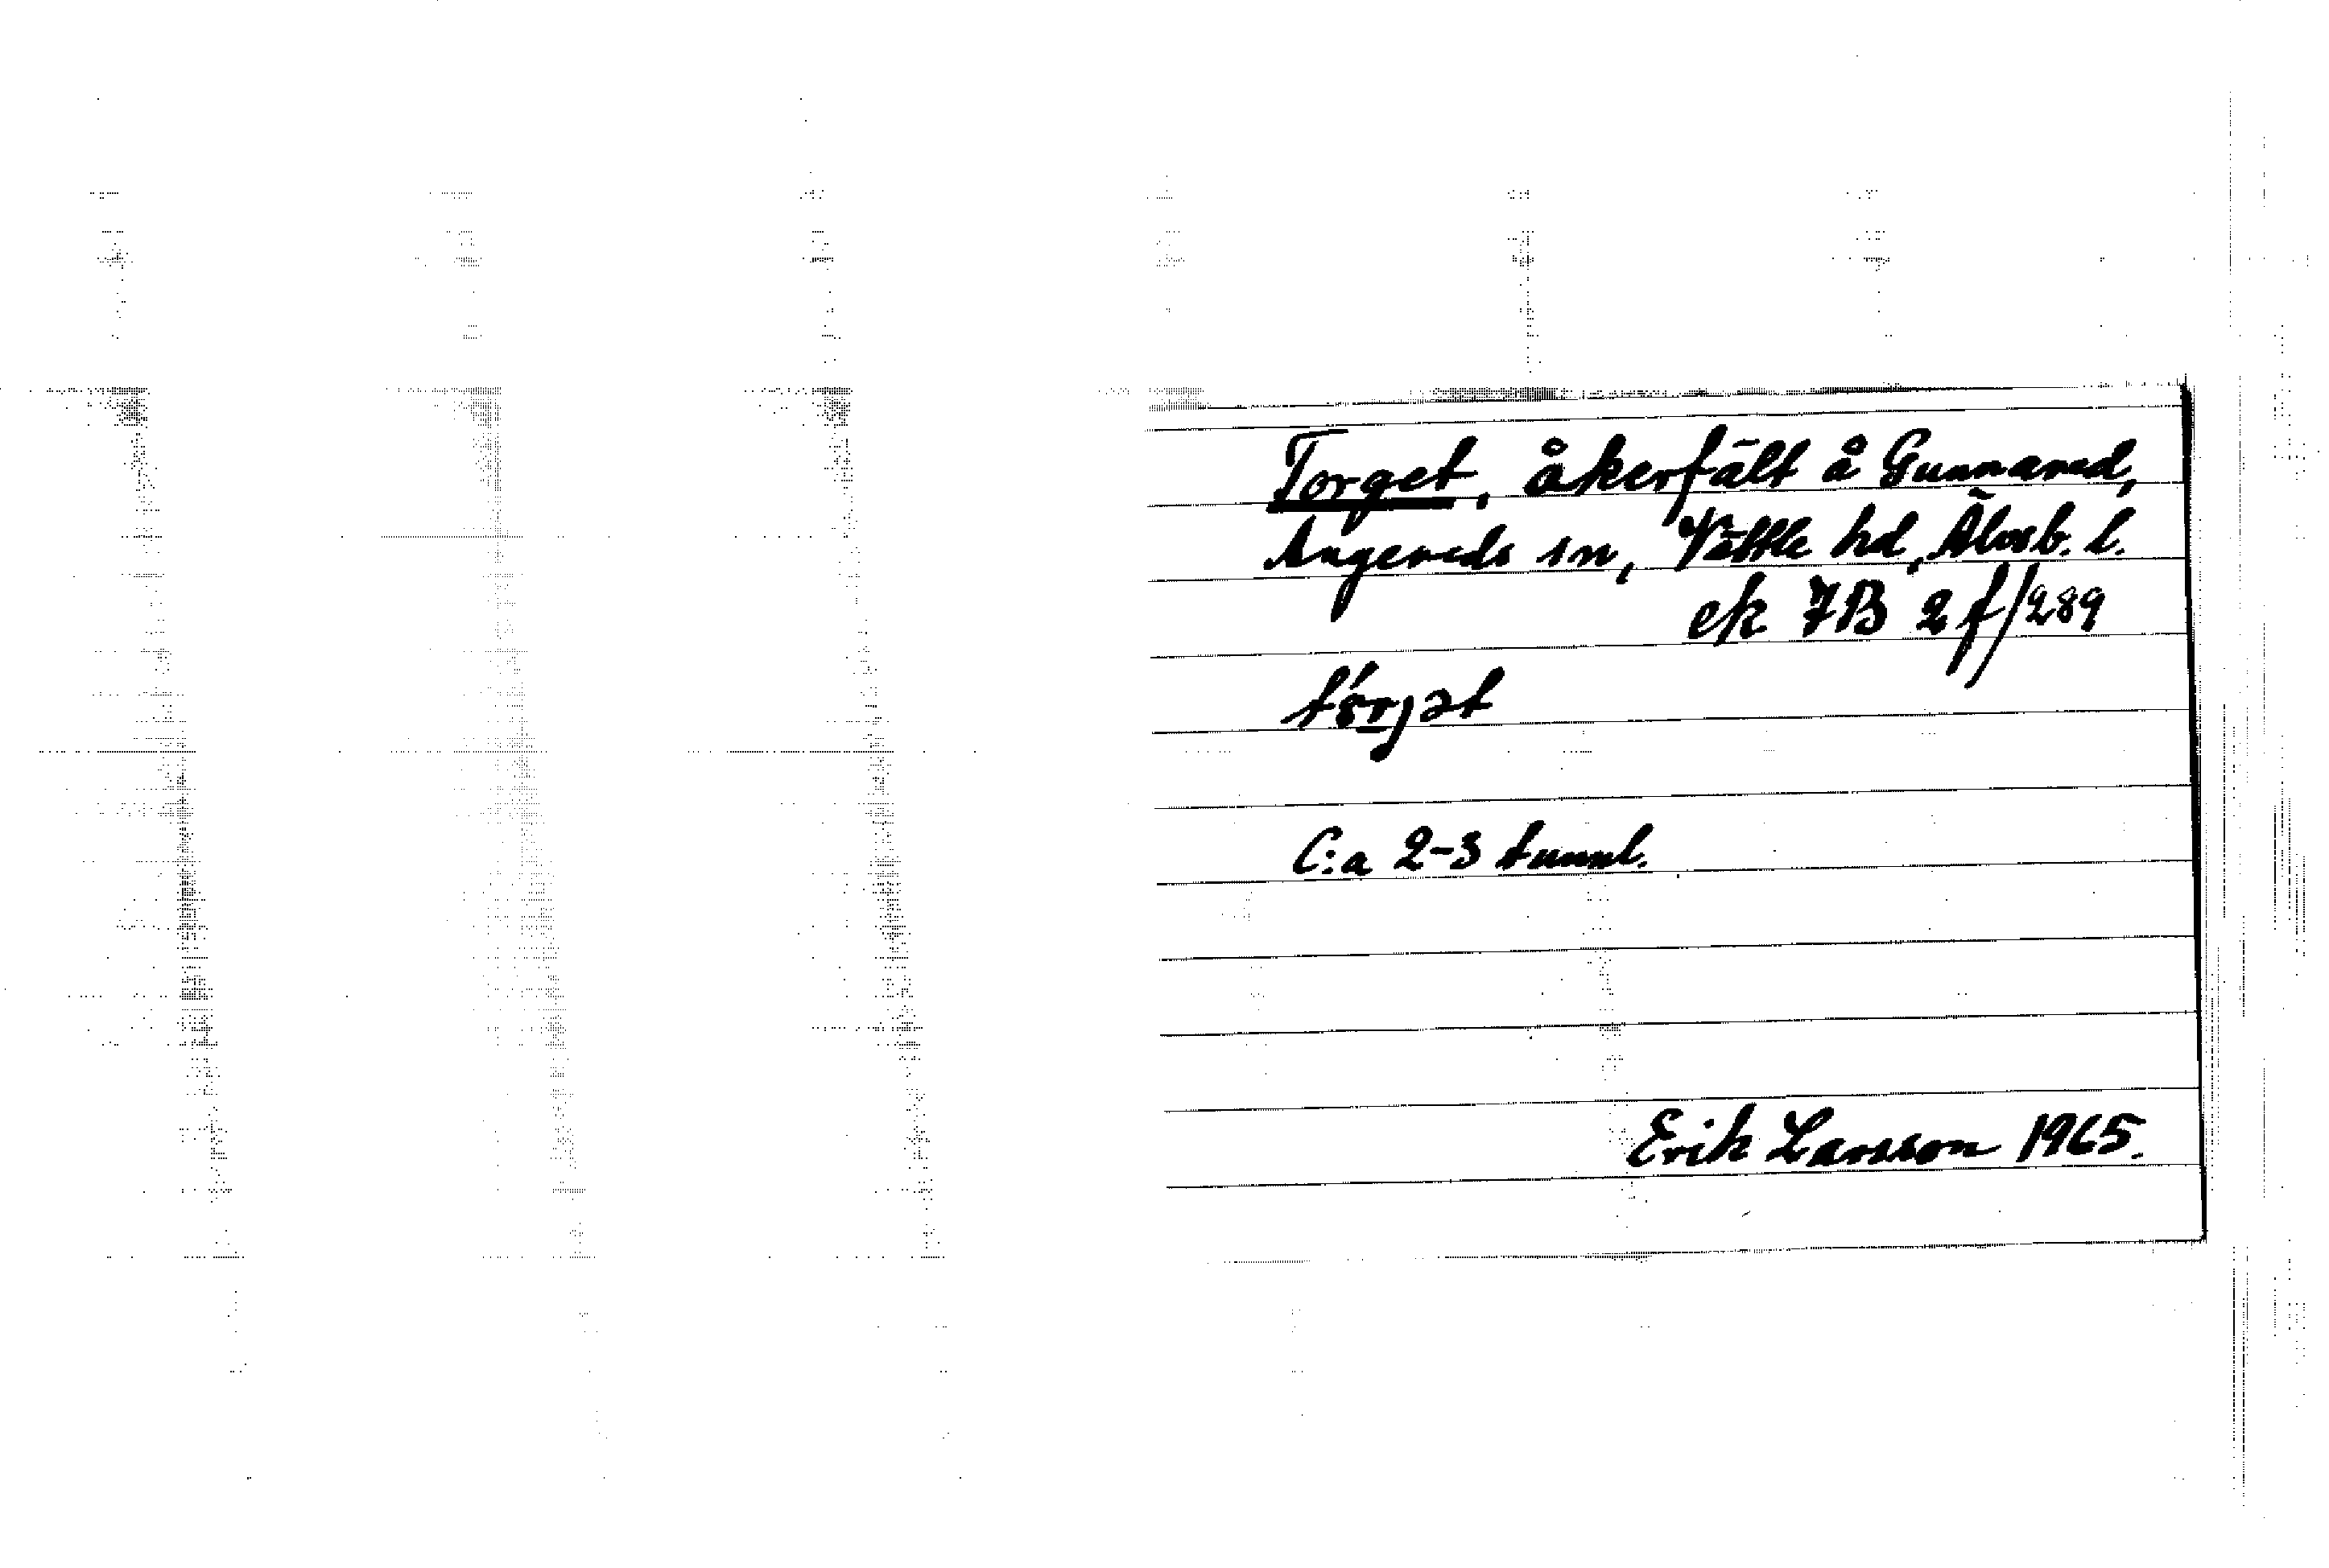 Torget, åkerfält å Gunnared,
Angereds sn, Vättle hd, Älvsb. l.
ek 7B 2f/289
C:a 2-3 tunnl.
Erik Larsson 1965.